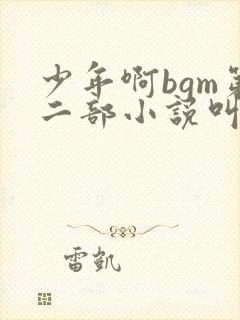 少年啊bgm第
二部小说叫
雷凯